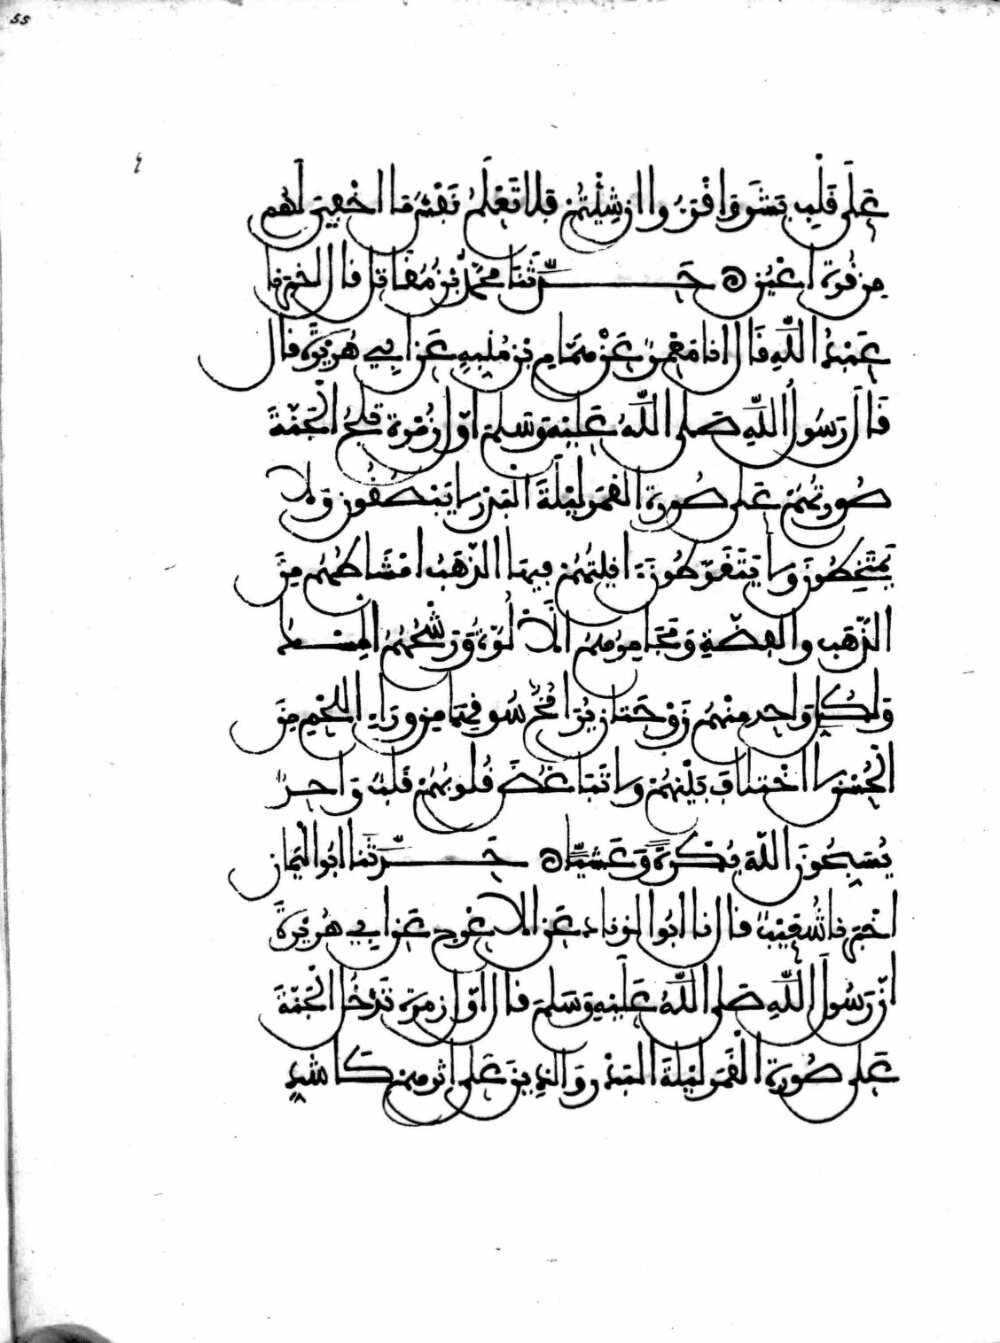 55
عَلَى قَلْبِ بَشَرٍ وَاقْرَءُوا إن شِئْتُمْ فَلا تَعْلَمُ نَفْسٌ مَّا أُخْفِيَ لَهُم
مِن قُرَّةِ أَعْيُنٍ حَدَّثَنَا مُحَمَّدُ بْنُ مُقَاتِلٍ قال اخبرنا
عَبْدُ اللَّهِ قَالَ انا مَعْمَرٌ عَنْ هَمَّامِ بْنِ مُنَبِّهٍ عَن أبِي هُرَيْرَةَ قال
قَالَ رَسُولُ اللَّهِ صَلَّى اللَّهُ عَلَيْهِ وَسَلَّمَ أَوَّلُ زُمْرَةٍ تَلِجُ الْجَنَّةَ
صُورَتُهُمْ عَلَى صُورَةِ القَمَرِ لَيْلَةَ البَدْرِ لا يَبْصُقُونَ وَلا
يَمْتَخِطُونَ ولا يَتَغَوَّطُونَ ءانِيَتُهُمْ فِيهَا الذَّهَبُ أَمْشَاطُهُمْ مِنَ
الذَّهَبِ والْفِضَّةِ وَمَجَامِرُهُمُ الأَلُوَّةُ وَرَشْحُهُمُ المِسْكُ
وَلِكُلِّ وَاحِدٍ مِنْهُمْ زَوْجَتَانِ يُرَى مُخُّ سُوقِهِمَا مِن وَرَاءِ اللَّحْمِ مِنَ
الْحُسْنِ لا اخْتِلافَ بَيْنَهُمْ ولا تَبَاغُضَ قُلُوبُهُمْ قَلْبٌ وَاحِدٌ
يُسَبِّحُونَ اللَّهَ بُكْرَةً وَعَشِيًّا حَدَّثَنَا ابُو اليَمَانِ
اخْبَرَنَا شُعَيْبٌ قال نا ابُو الزناد عَنِ الأعْرَجِ عَن أبِي هُرَيْرَةَ
أنَّ رَسُولَ اللَّهِ صَلَّى اللَّهُ عَلَيْهِ وَسَلَّمَ قال أَوَّلُ زمرة تَدْخُلُ الْجَنَّةَ
عَلَى صُورَةِ الْقَمَرِ لَيْلَةَ البَدْرِ وَالذِينَ عَلَى اثرِهِمْ كَأَشَدِّ